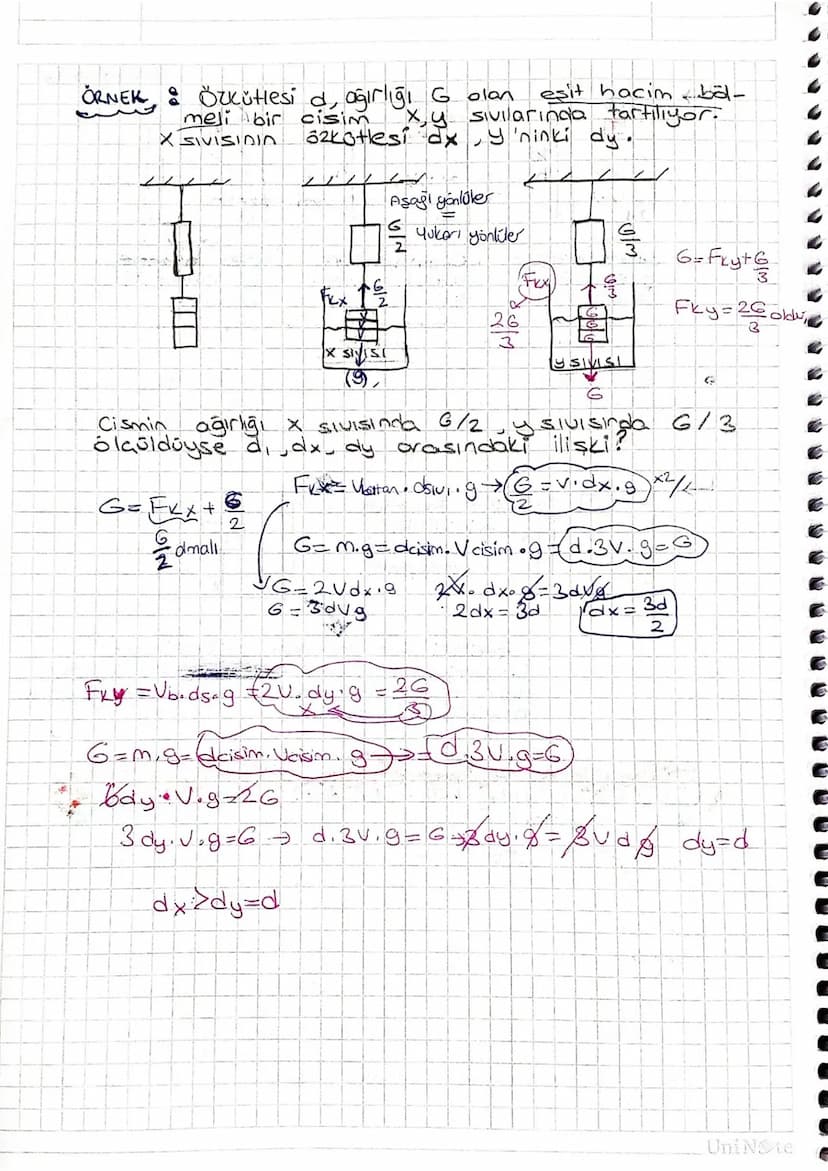 ÖRNEK : Özkütlesi d, ağırlığı G olan eşit hacim böl-
meli bir cisim x,y sıvılarında tartılıyor.
x sıvısının özkütlesi dx, y'ninki dy.
Aşağı yönlüler
=
Yukarı yönlüler
G/2
G/3
FKx
G/2
x sıvısı
(g)
FKx
2G/3
G/3
G
G
G
y sıvısı
G
G=FKy+G/3
FKy=2G/3 oldu
Cismin ağırlığı x sıvısında G/2, y sıvısında G/3
ölçüldüyse d, dx, dy arasındaki ilişki?
FKx= Vbatan.dsıvı.g → G/2 = v.dx.g x2/
G= FKx + G/2
G/2 olmalı
G= m.g= dcisim.Vcisim.g = d.3V.g=G
G=2Vdx.g
G=3dVg
2V.dx.g=3dVg
2dx=3d
dx=3d/2
FKy =Vb.ds.g =2V.dy.g = 2G/3
x
G=m.g= dcisim.Vcisim.g → = d.3V.g=G
6dy.V.g=2G
3dy.V.g=G → d.3V.g=G → 3dy.g = 3Vdg dy=d
dx>dy=d
UniNote